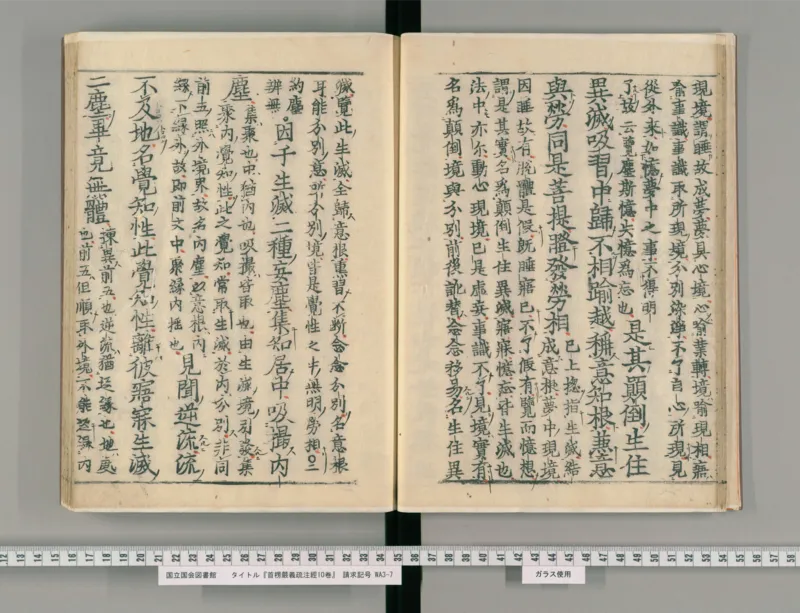 現境謂睡故成夢夢具心境心喻業轉境喻現相寤
喻事識事識取所現境分別染淨不了自心所現見
從外來如憶夢中之事不得明
了故云覽塵斯憶失憶為忘也
是其顛倒生住
異滅吸習中歸不相踰越稱意知根兼意
與勞同是菩提瞪發勞相
已上摠指生滅結
成意根夢中現境
因睡故有脫體是假既睡寤已不了假有覽而憶想
謂是其實名為顛倒生住異滅寤寐憶忘幷生滅也
法中亦尒動心現境已是虛妄事識不了見境實有
名為顛倒境與分別前後訛替念念移易名生住異
滅覽此生滅全歸意根熏習不斷念念分別名意根
耳能分別意所分別境皆是覺性之中無明勞相○二
約塵
辨無
因于生滅二種妄塵集知居中吸撮內
塵
集聚也中猶內也吸撮皆取也由生滅境引衆集
聚內覺知性此之覺知常取生滅於內分別非同
前五照外境界故名內塵即意根內
緣不緣外故即前文中聚緣內也
見聞逆流流
不及地名覺知性此覺知性離彼寤寐生滅
二塵畢竟無體
異前五也逆流猶返緣也地處
也前五但順取外境不能返緣內
国立国会図書館 タイトル『首楞嚴義疏注経10巻』 請求記号 WA3-7
ガラス使用